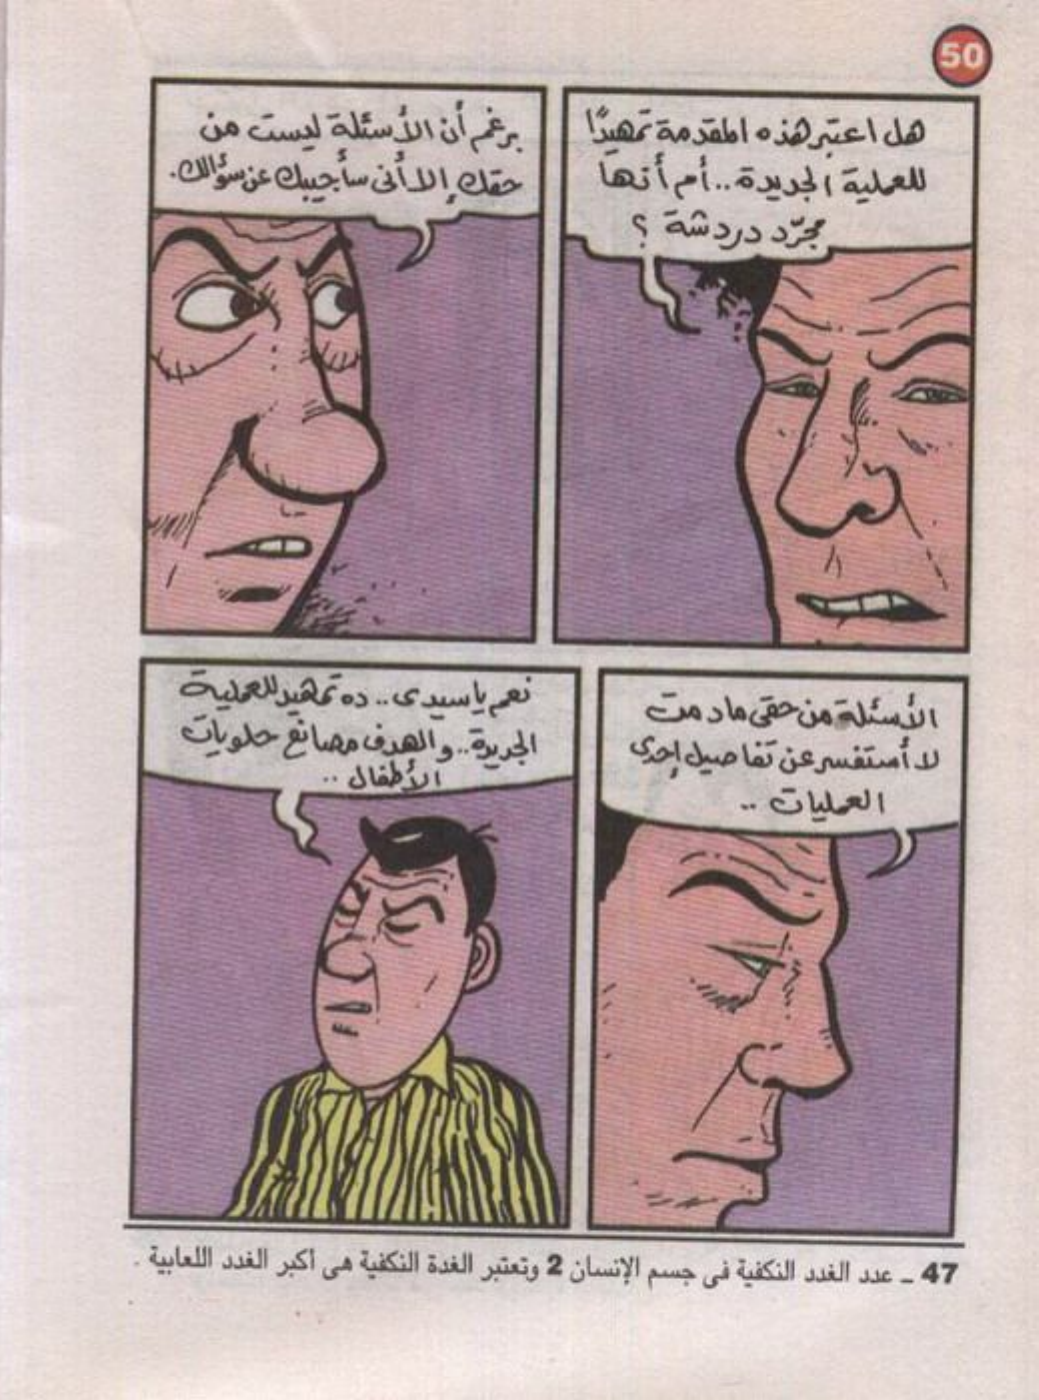 50
هل اعتبر هذه المقدمة تمهيدًا
للعملية الجديدة .. أم أنها
مجرّد دردشة ؟
برغم أن الأسئلة ليست من
حقك إلا أنى سأجيبك عن سؤالك.
الأسئلة من حقى ما دمت
لا أستفسر عن تفاصيل إحدى
العمليات ..
نعم يا سيدى .. ده تمهيد للعملية
الجديدة .. والهدف مصانع حلويات
الأطفال ..
47 ــ عدد الغدد النكفية فى جسم الإنسان 2 وتعتبر الغدة النكفية هى أكبر الغدد اللعابية .